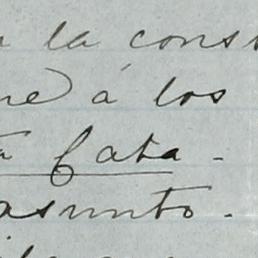 a la cons
ne á los
a Cata-
asunto.